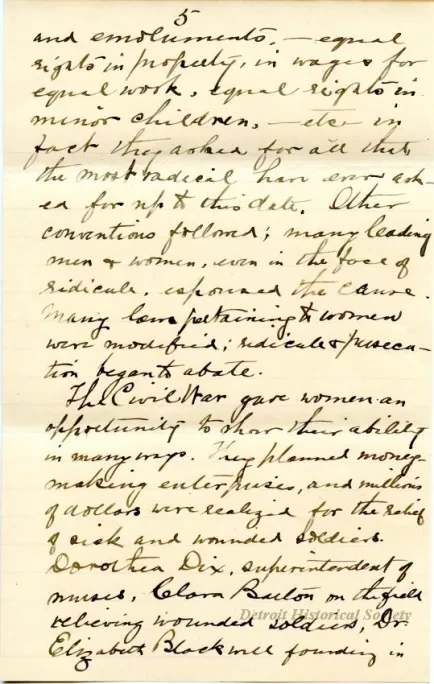 5
and emoluments, — equal
rights in property, in wages for
equal work, equal rights in
minor children, — etc — in
fact they asked for all that
the most radical have ever ask-
ed for up to this date. Other
conventions followed; many leading
men & women, even in the face of
ridicule, espoused the cause.
Many laws pertaining to women
were modified; ridicule & persecu-
tion began to abate.
The Civil War gave women an
opportunity to show their ability
in many ways. They planned money-
making enterprises, and millions
of dollars were realized for the relief
of sick and wounded soldiers.
Dorothea Dix, superintendent of
nurses, Clara Barton on the field
relieving wounded soldiers, Dr.
Detroit Historical Society
Elizabeth Blackwell founding in